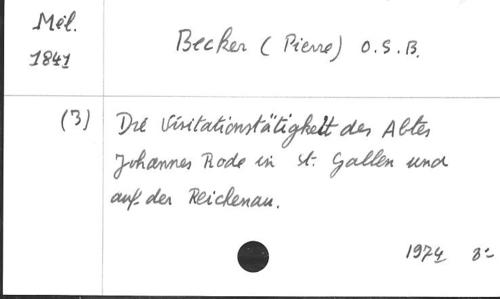 Mél.
1841
Becker (Pierre) O.S.B.
(3) Die Visitationstätigkeit des Abtes
Johannes Rode in St. Gallen und
auf der Reichenau.
1974 8°